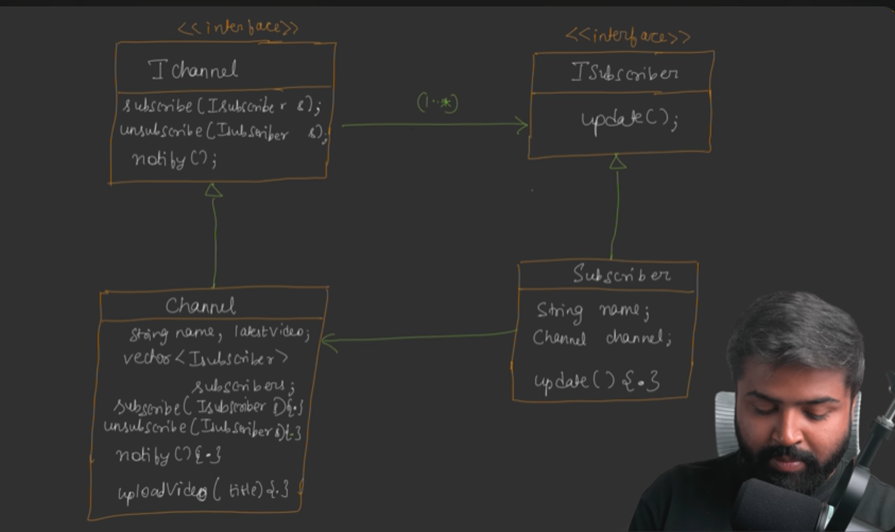 <<interface>>
IChannel
subscribe(ISubscriber s);
unsubscribe(ISubscriber s);
notify();
(1..*)
<<interface>>
ISubscriber
update();
Channel
string name, latestVideo;
vector<ISubscriber>
subscribers;
subscribe(ISubscriber s){.}
unsubscribe(ISubscriber s){.}
notify(){.}
uploadVideo(title){.}
Subscriber
String name;
Channel channel;
update(){.}